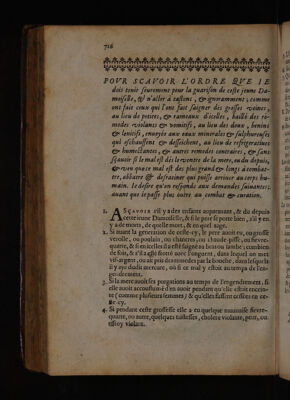 716
POVR SCAVOIR L'ORDRE QVE IE
dois tenir seurement pour la guarison de ceste jeune Da-
moiselle, & n'aller à tastons, & ignoramment, comme
ont fait ceux qui l'ont fait saigner des grosses vaines,
au lieu de petites, & rameaux d'icelles, baillé des re-
medes violans & vomitifs, au lieu des doux, benins
& lenitifs, envoyée aux eaux minerales & sulphureuses
qui eschauffent & dessèichent, au lieu de refrigeratives
& humectantes, & autres remedes contraires, & sans
sçavoir si le mal est dés le ventre de la mere, ou du depuis,
& veu que ce mal est des plus grands & longs à combat-
tre, abbatre & desraciner qui puisse arriver au corps hu-
main. Ie desire qu'on responde aux demandes suivantes,
avant que ie passe plus outre au combat & curation.
1. ASÇAVOIR s'il y a des enfans auparavant, & dis depuis
cette jeune Damoiselle, & si le pere se porte bien, s'il y en
y a de morts, de quelle mort, & en quel aage.
2. Si durant la generation de ceste-cy, le pere avoit eu, ou grosse
verolle, ou poulain, ou chancres, ou chaude-pisse, ou fievre-
quarte, & si en icelles il a esté saigné au bras ou iambe, combien
de fois, & s'il a esté frotté avec l'onguent, dans lequel on met
vif-argent, ou a pris des remedes par la bouche, dans lesquels
il y aye dudit mercure, où si ce mal y estoit au temps de l'en-
gendrement.
3. Si la mere avoit ses purgations au temps de l'engendrement, si
elle avoit accoustumé d'en avoir pendant qu'elle estoit encein-
te (comme plusieurs femmes) & qu'elles fussent cessées en ce-
ste-cy.
4. Si pendant ceste grossesse elle a eu quelque mauvaise fievre-
quarte, ou autre, quelques tristesses, cholere violante, peur, ou